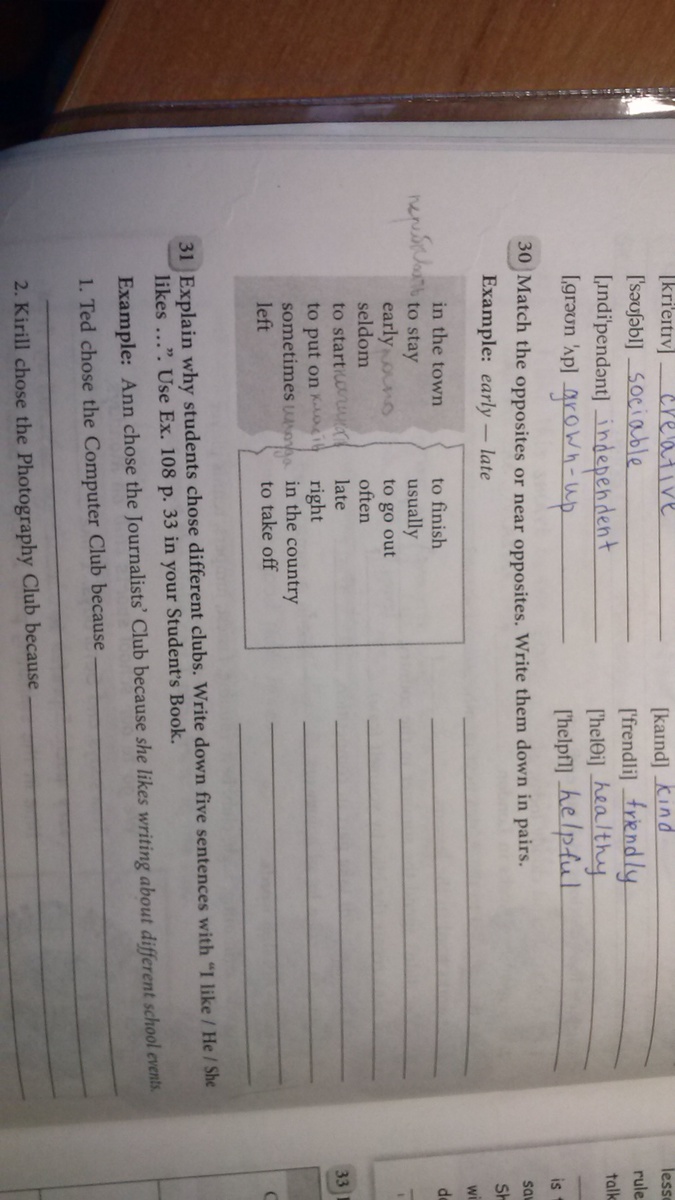 [kriˈeɪtɪv] creative
[ˈsəʊʃəbl] sociable
[ˌɪndɪˈpendənt] independent
[ˌgrəʊn ˈʌp] grown-up
[kaɪnd] kind
[ˈfrendli] friendly
[ˈhelθi] healthy
[ˈhelpfl] helpful
30 Match the opposites or near opposites. Write them down in pairs.
Example: early — late
in the town
to stay
early рано
seldom
to start
to put on
sometimes
left
to finish
usually
to go out
often
late
right
in the country
to take off
31 Explain why students chose different clubs. Write down five sentences with “I like / He / She
likes … .” Use Ex. 108 p. 33 in your Student's Book.
Example: Ann chose the Journalists' Club because she likes writing about different school events.
1. Ted chose the Computer Club because
2. Kirill chose the Photography Club because
33
rule
talk
is